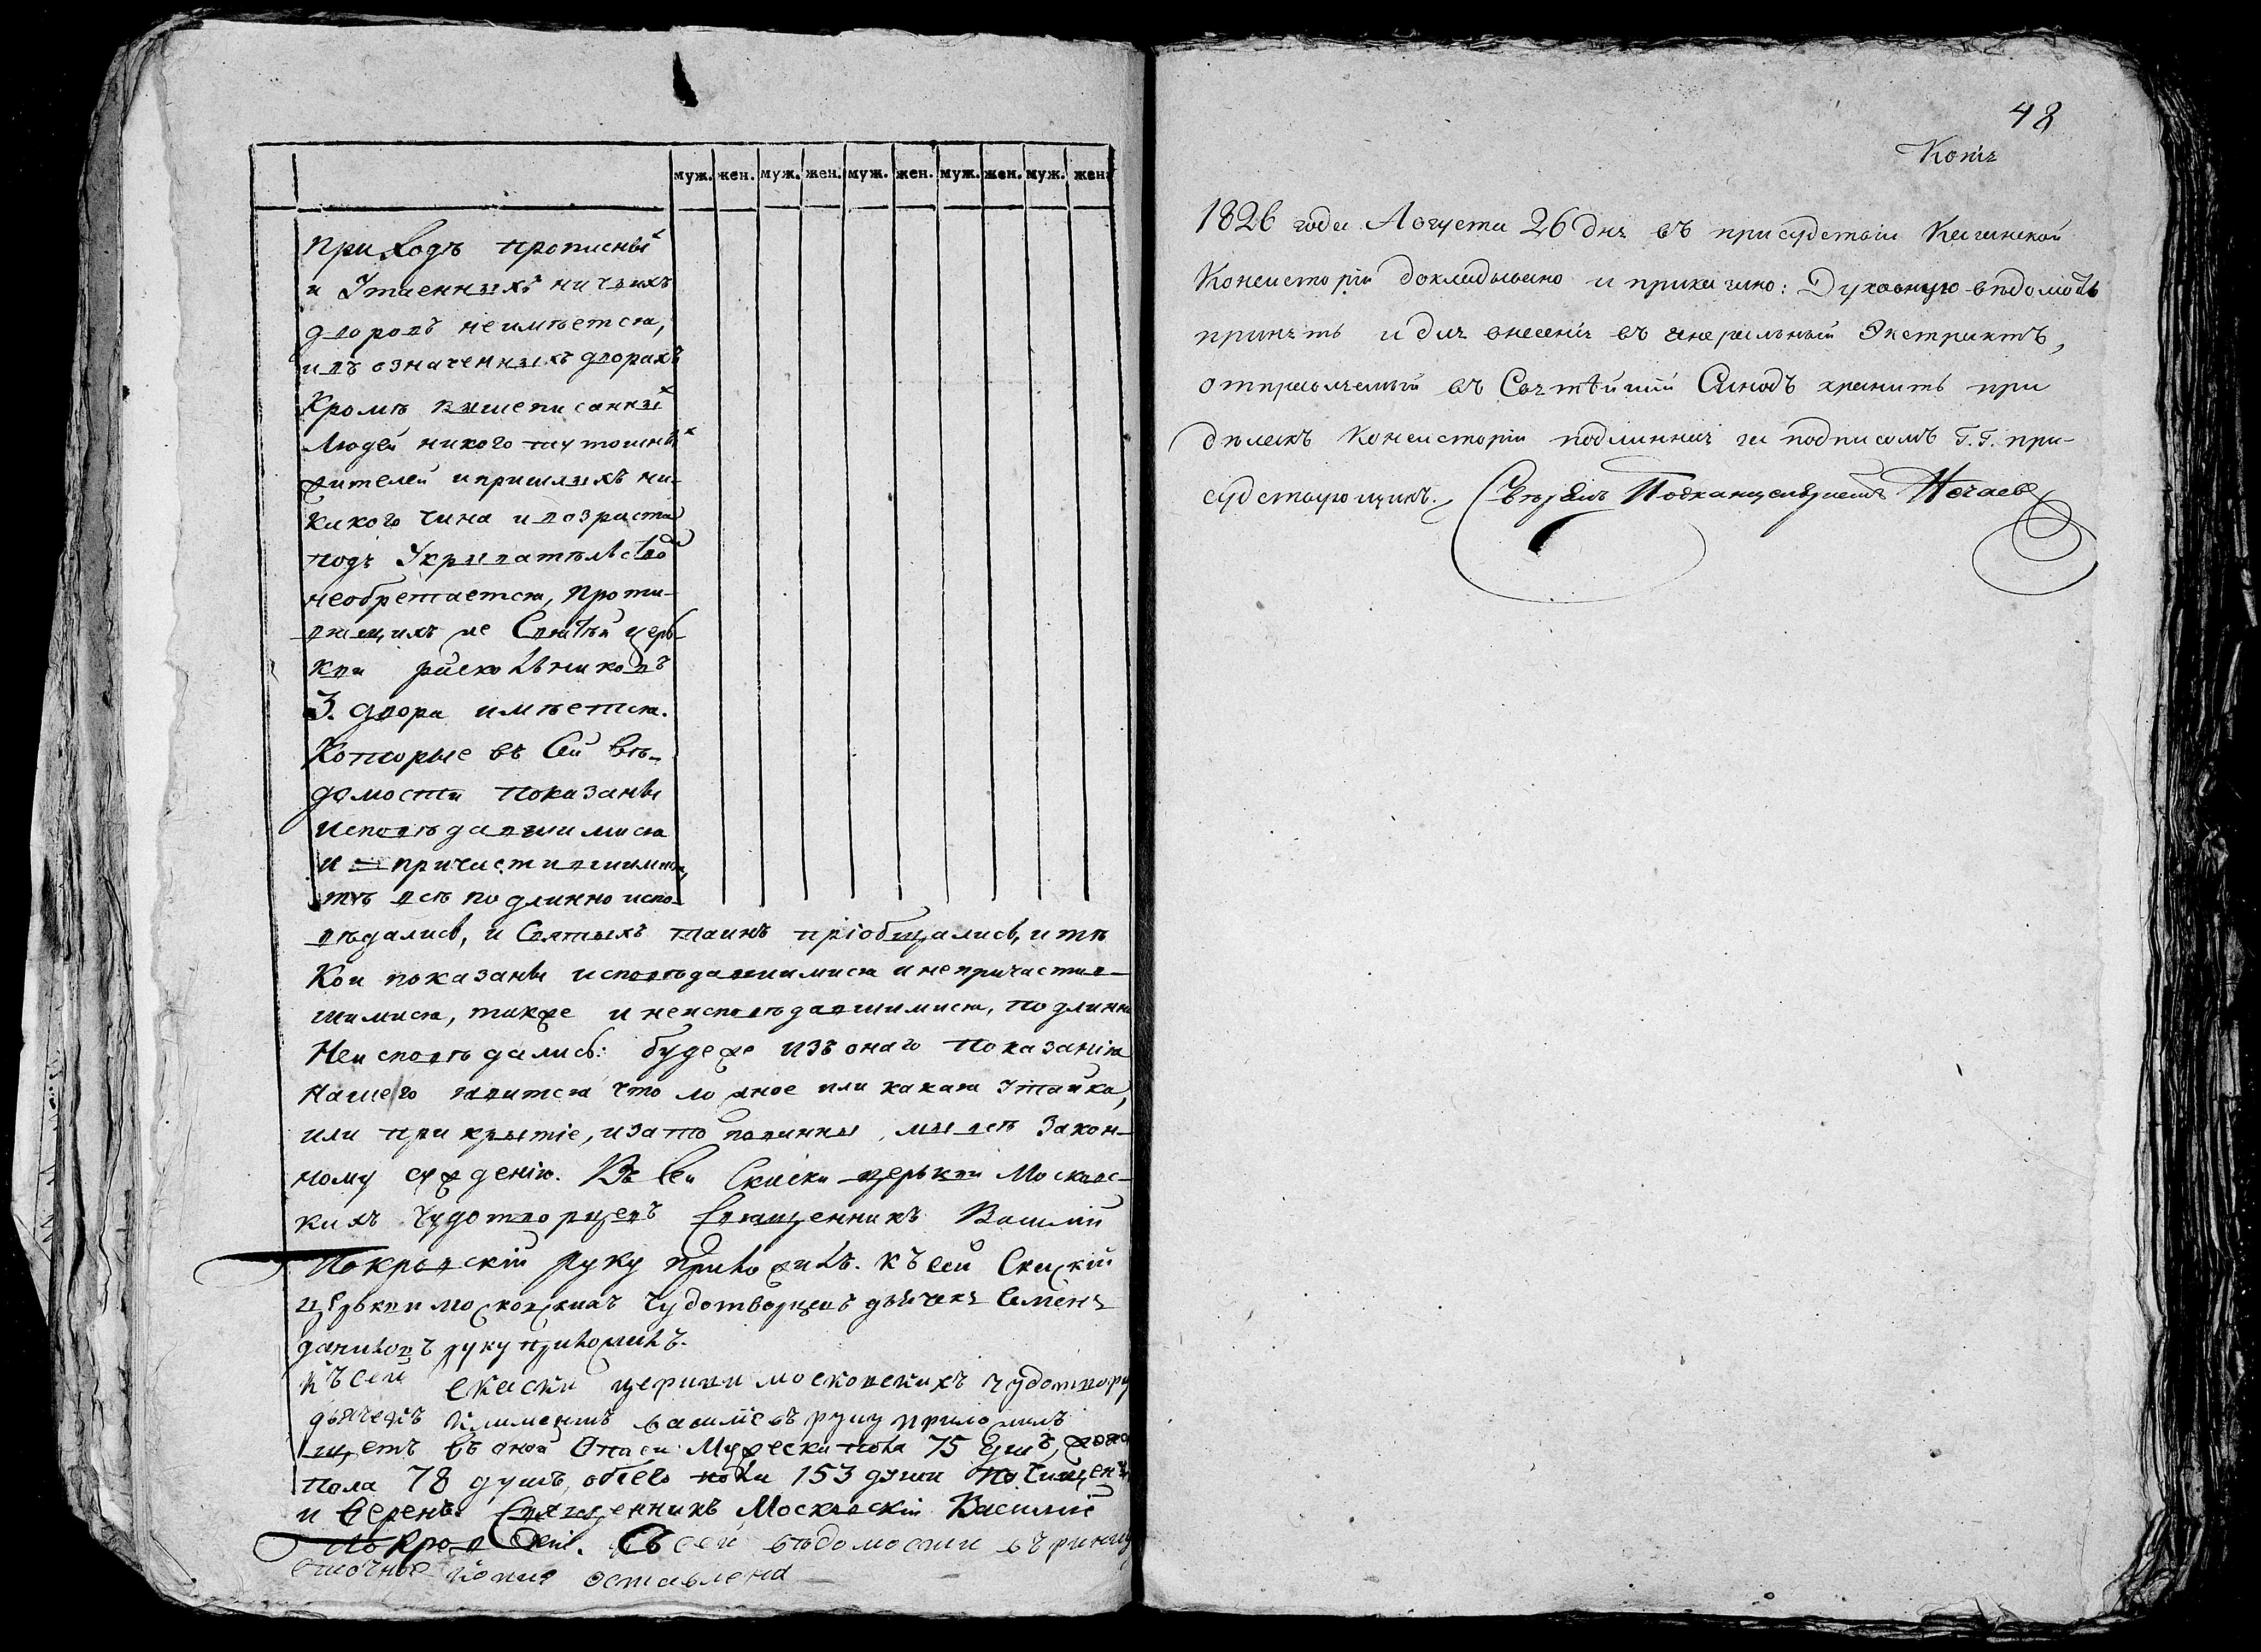 муж. жен. муж. жен. муж. жен. муж. жен. муж. жен.
приходъ прописны х
и Утаенныхъ ничьихъ
дворовъ неимѣется,
ивъ означенныхъ дворахъ
Кромѣ вышеписанны х
людей никого тутошны х
жителей ипришлыхъ ни-
какого чина и возраста
подъ Укрывателство
необретается, Проти-
вящихъ же Святѣй церь-
кви расколниковъ
3. двора имѣется.
Которые въ Сей вѣ-
домости показаны
исповѣдавшимися
и причастившимися,
тѣ всѣ подлинно испо-
вѣдались, и Святыхъ таинъ пріобщались, и тѣ
Кои показаны исповѣдавшимися инепричастив-
шимися, также и неисповѣдавшимися, подлинно
Неисповѣдались: будеже изъ онаго показанія
нашего явится что ложное или какая Утайка,
или прикрытіе, изато повинны мы всѣ Закон-
ному сужденію. Къ Сей Скаски церькви Московс-
кихъ Чудотворцевъ Священникъ Василій
Покровскій руку приложилъ. Къ сей Скаскѝ
церькви московскихъ Чудотворцевъ дьячекъ Семенъ
даниловъ руку приложилъ.
Къ сей скаски церкви московскихъ чудотвор
дьячекъ Климентъ васильевъ руку приложилъ
щетъ въ оной Описи Мужеска пола 75 душъ, женс
пола 78 душъ, обоего пола 153 души
и веренъ. Священникъ Московскій Василій
Покровскій. Съ сей вѣдомости въ ризни
копия оставлена
48
Копія
1826 года Августа 26 дня въ присудствіи Казанской
Консисторіи докладывано и приказано: Духовную вѣдомость
принять и для внесенія въ генеральный Экстрактъ,
отправляемый въ Святѣйшій Сѵнодъ хранить при
дѣлахъ Консисторіи подлинная за подписомъ Г. Г. при-
судствующихъ. Свѣрялъ Подканцеляристъ Нечаевъ